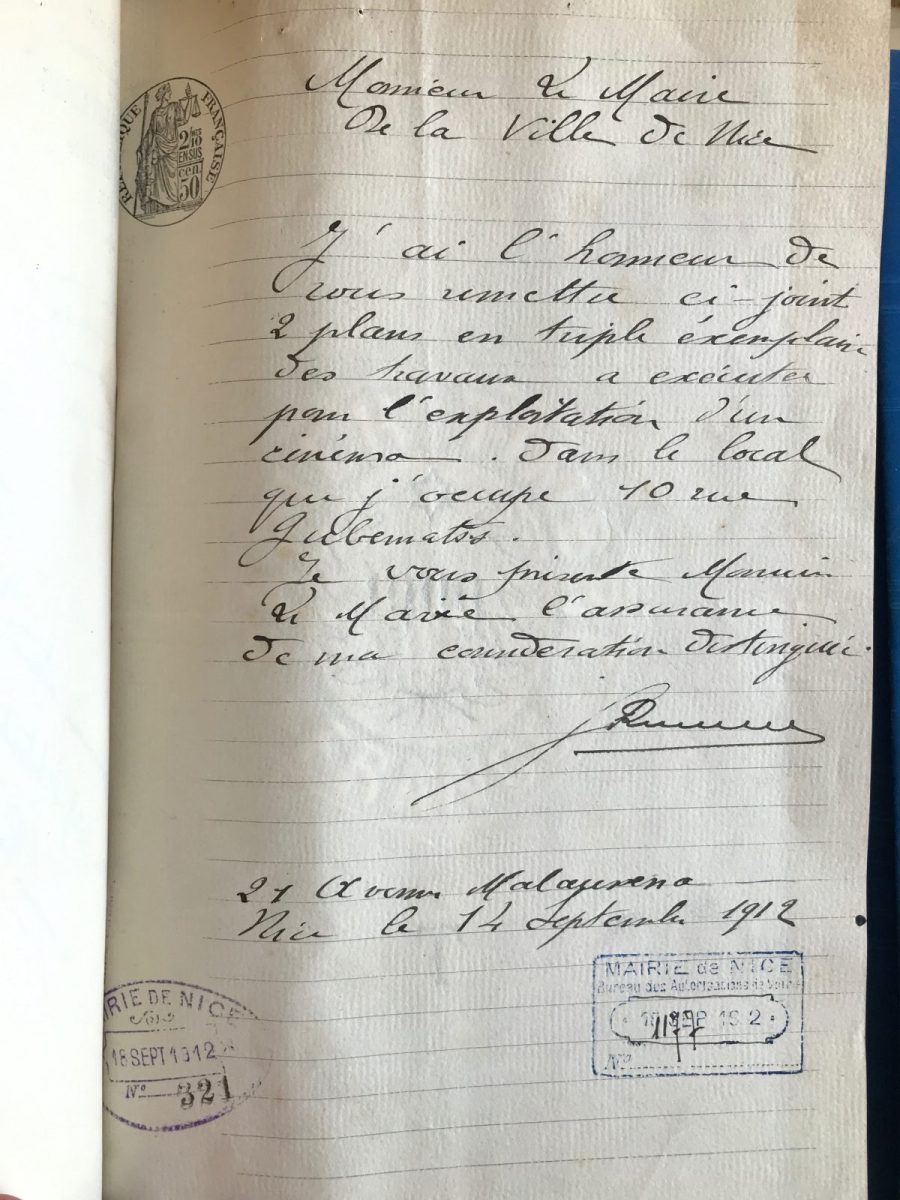 RÉPUBLIQUE FRANÇAISE
2/10
EN SUS
cen
50
Monsieur Le Maire
De la Ville de Nice
J'ai l'honneur de
vous remettre ci-joint
2 plans en triple éxemplaire
des travaux a exécuter
pour l'exploitation d'un
cinéma. Dans le local
que j'occupe 10 rue
Gubernatis.
Je vous présente Monsieur
Le Maire l'assurance
de ma consideration distinguée.
21 Avenue Malausena
Nice le 14 Septembre 1912
MAIRIE de NICE
Bureau des Autorisations de Voirie
SEP
1177
No
MAIRIE DE NICE
18 SEPT 1912
No 321